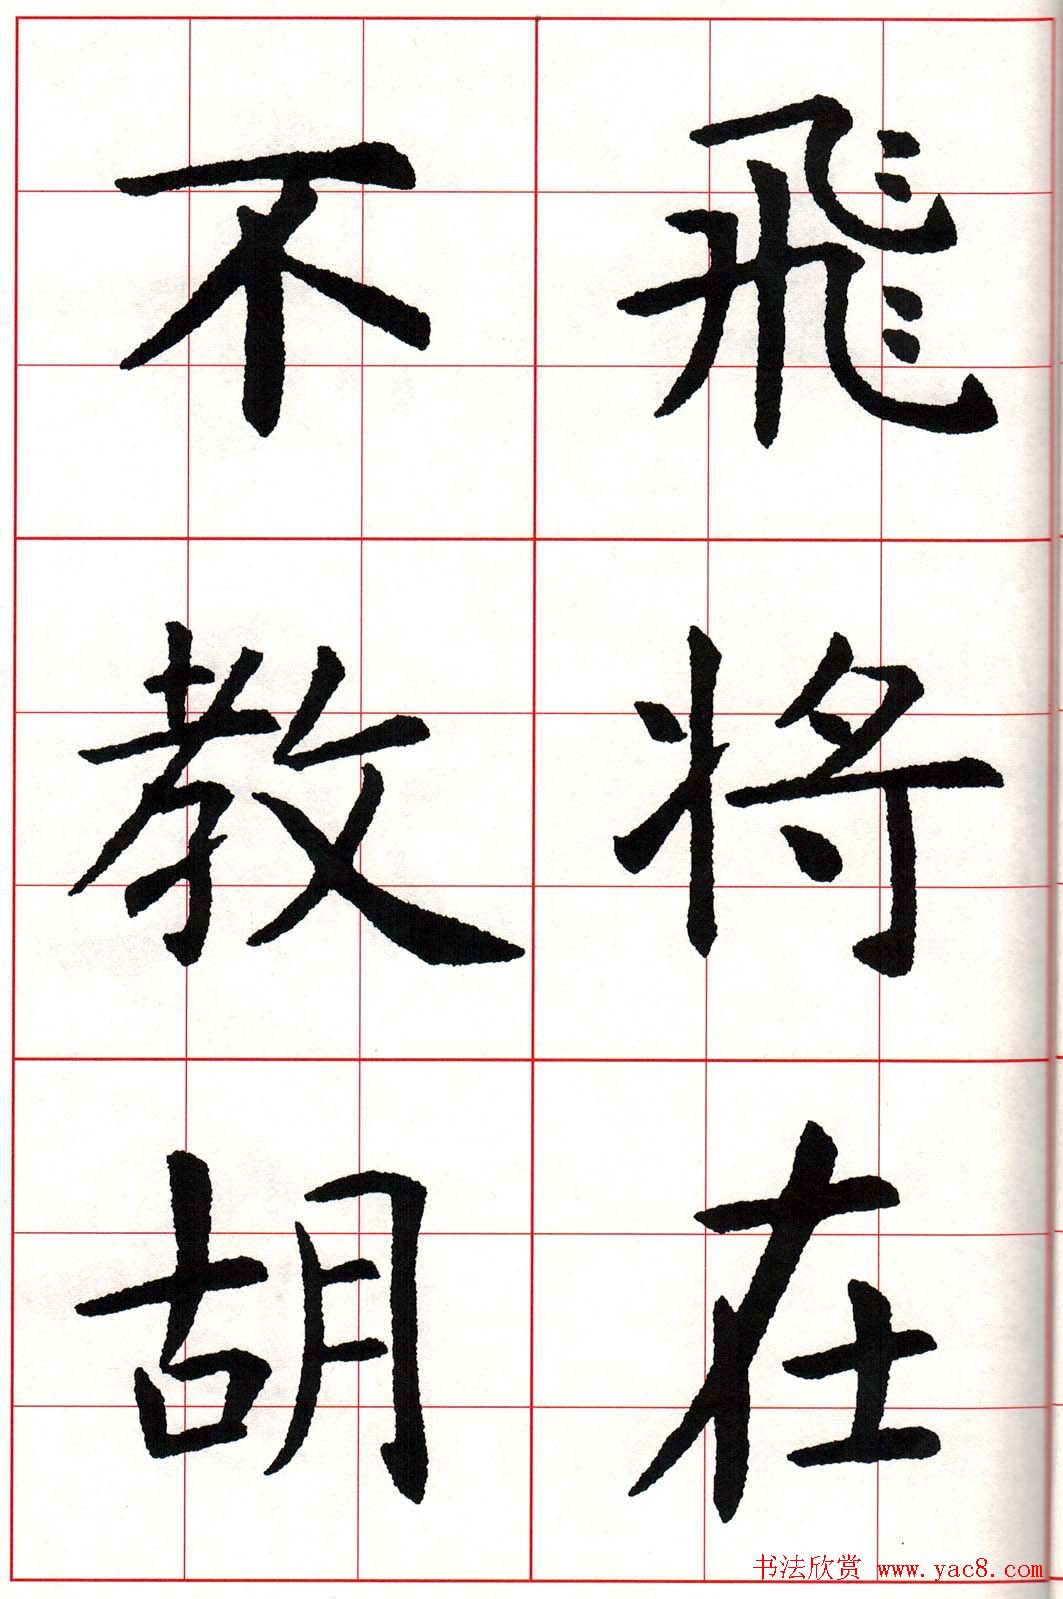 飛将在
不教胡
书法欣赏 www.yac8.com